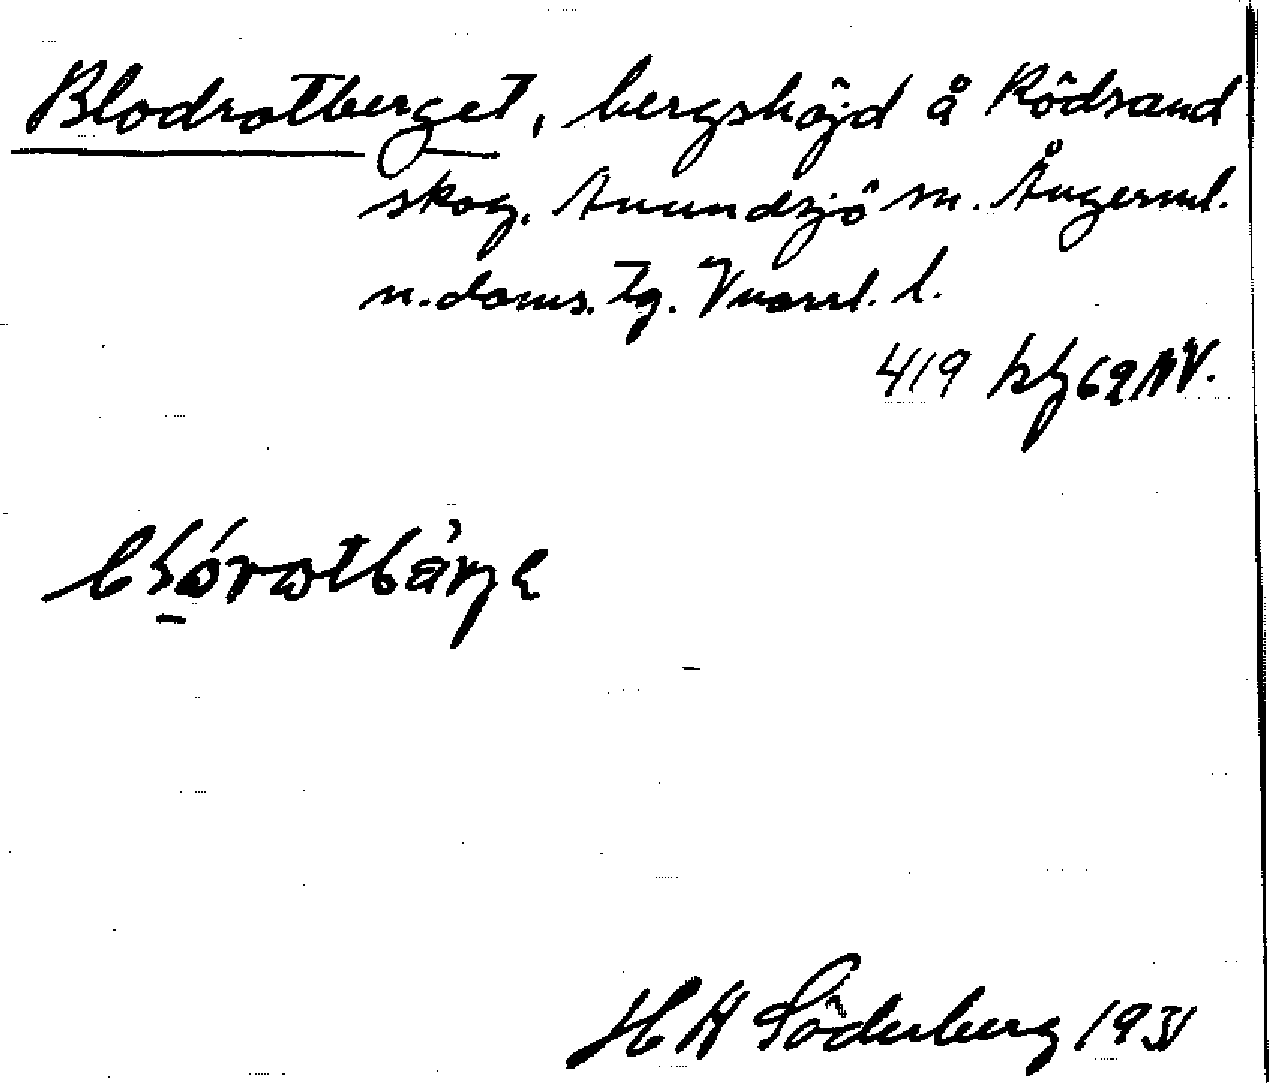 Blodrotberget, bergshöjd å Rödsand
skog. Anundsjö sn. Ångerml.
n. doms. tg. Vnorrl. l.
419 kbl 62 NV.
H H Söderberg 1931